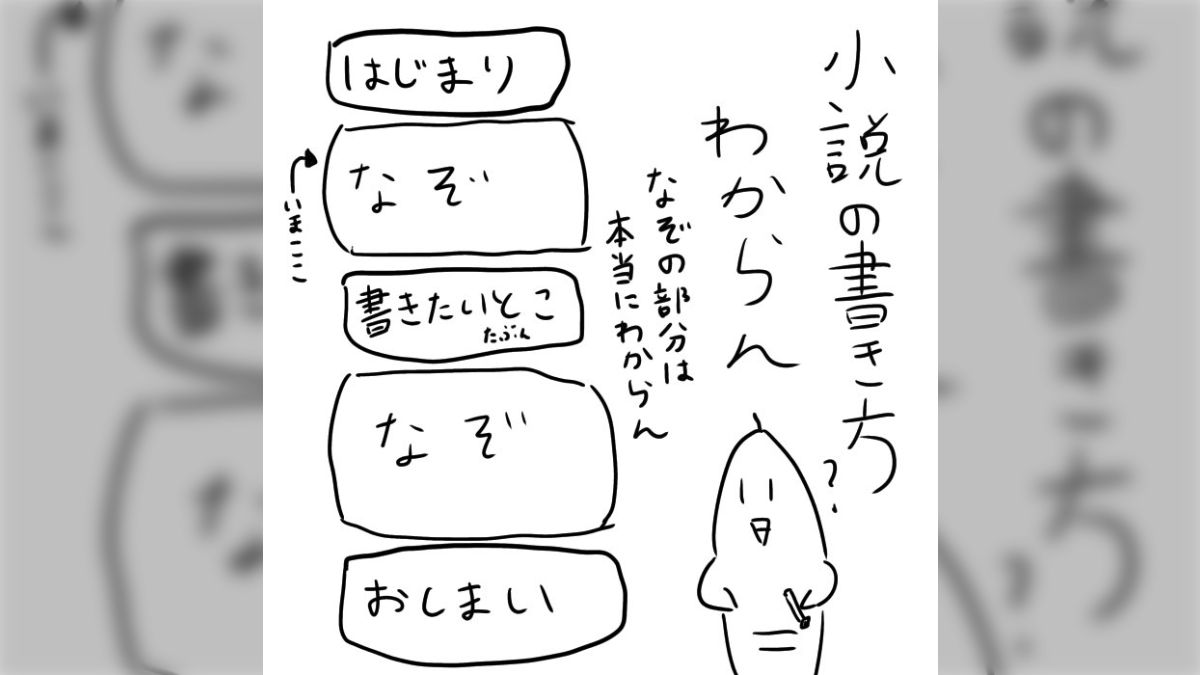 小説の書き方
わからん
?
なぞの部分は
本当にわからん
はじまり
なぞ
いまここ
書きたいとこ
たぶん
なぞ
おしまい